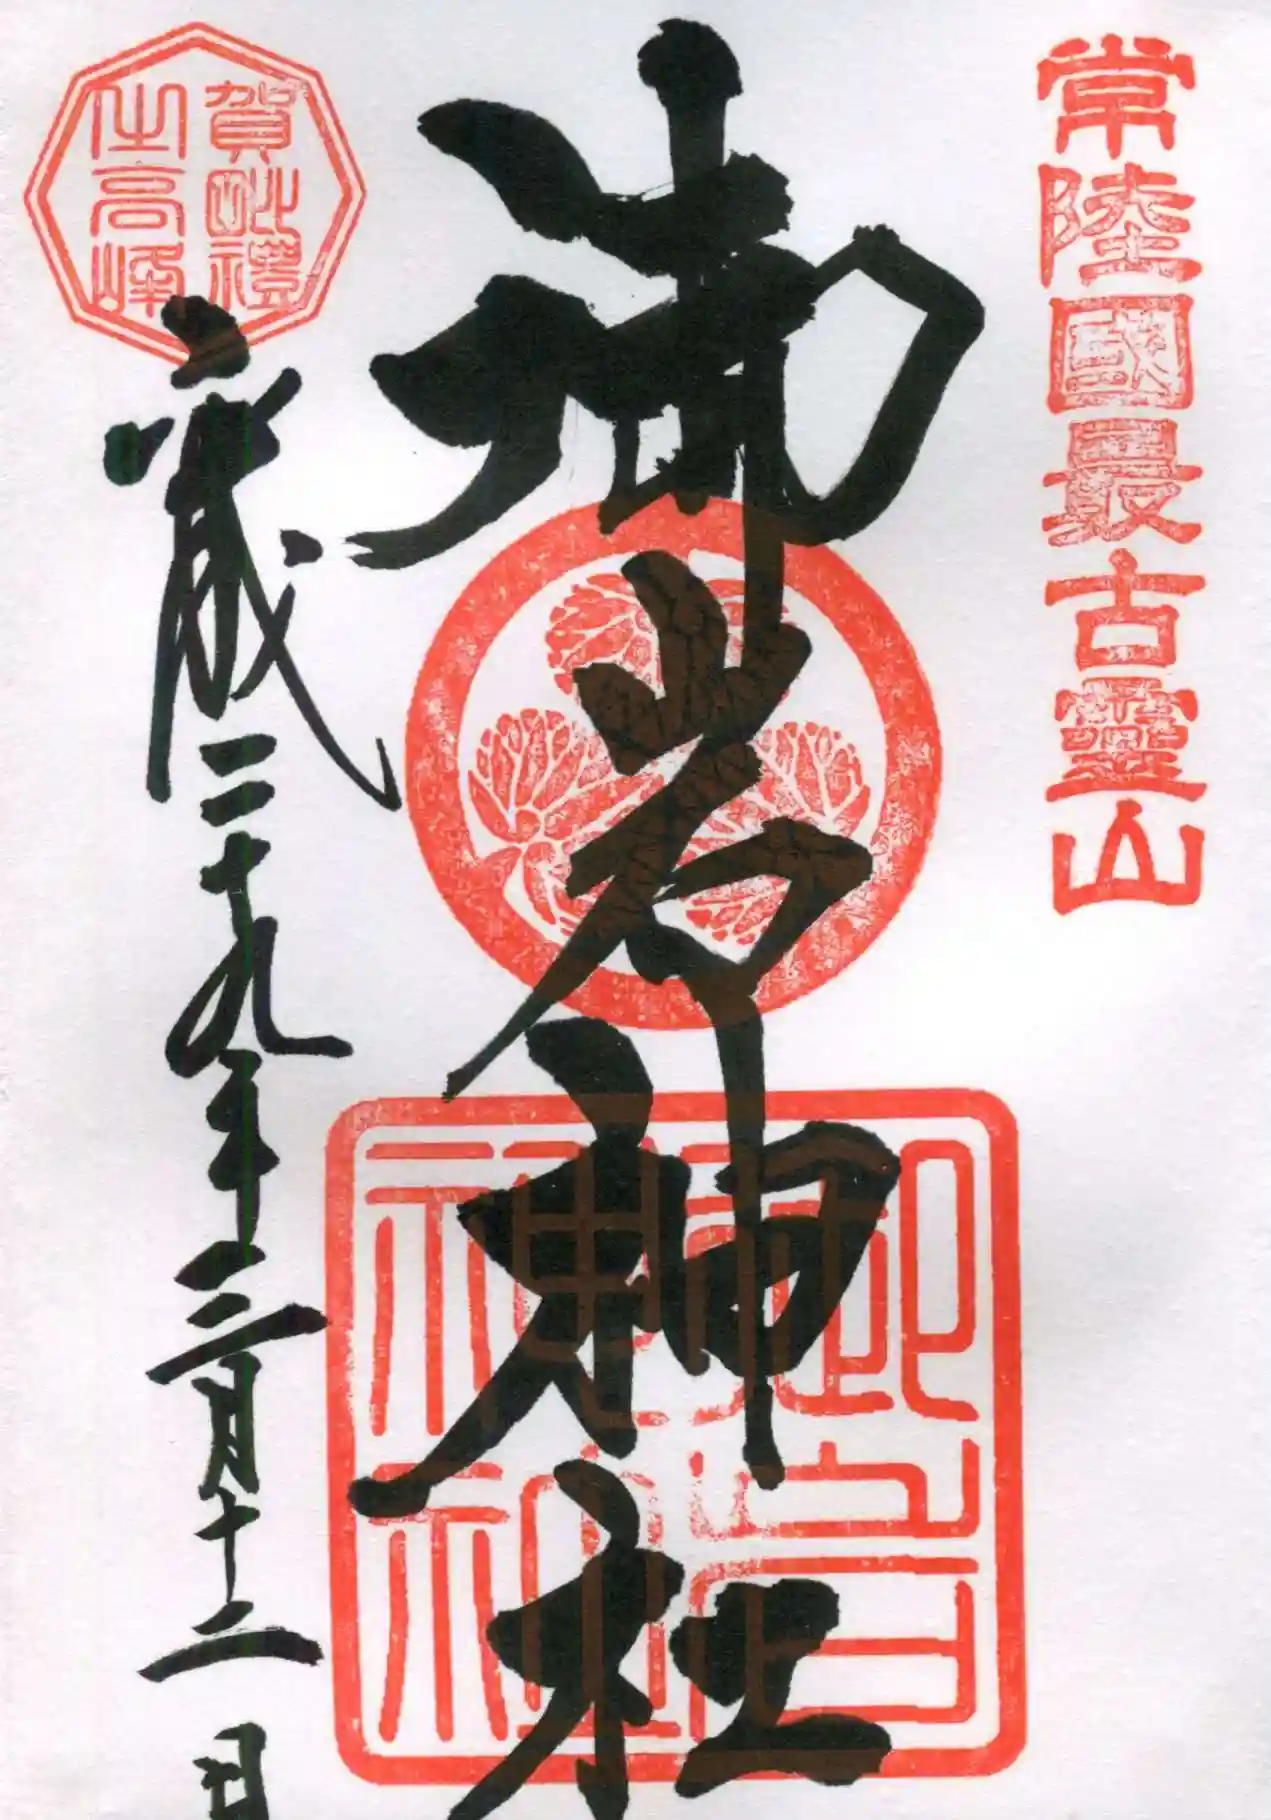 常陸國最古靈山
御岩神社
御岩
神社
賀毗禮
之高峰
平成二十九年三月十二日